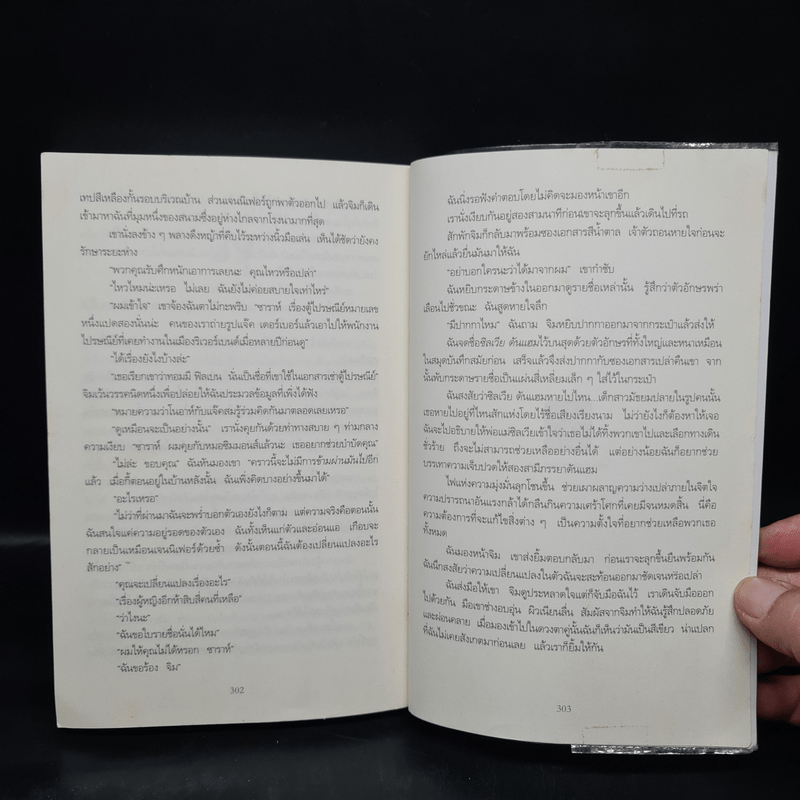 เทปสีเหลืองกั้นรอบบริเวณบ้าน ส่วนเจนนิเฟอร์ถูกพาตัวออกไป แล้วจิมก็เดิน
เข้ามาหาฉันที่มุมหนึ่งของสนามซึ่งอยู่ห่างไกลจากโรงนามากที่สุด
เขานั่งลงข้าง ๆ พลางดึงหญ้าที่คีบไว้ระหว่างนิ้วมือเล่น เห็นได้ชัดว่ายังคง
รักษาระยะห่าง
"พวกคุณรับศึกหนักเอาการเลยนะ คุณไหวหรือเปล่า"
"ไหวไหมน่ะเหรอ ไม่เลย ฉันยังไม่ค่อยสบายใจเท่าไหร่"
"ผมเข้าใจ" เขาจ้องฉันตาไม่กะพริบ "ซาราห์ เรื่องตู้ไปรษณีย์หมายเลข
หนึ่งแปดสองนั่นน่ะ คนของเราถ่ายรูปแจ๊ค เดอร์เบอร์แล้วเอาไปให้พนักงาน
ไปรษณีย์ที่เคยทำงานในเมืองริเวอร์เบนด์เมื่อหลายปีก่อนดู"
"ได้เรื่องยังไงบ้างล่ะ"
"เธอเรียกเขาว่าทอมมี ฟิลเบน นั่นเป็นชื่อที่เขาใช้ในเอกสารเช่าตู้ไปรษณีย์"
จิมเว้นวรรคนิดหนึ่งเพื่อปล่อยให้ฉันประมวลข้อมูลที่เพิ่งได้ฟัง
"หมายความว่าโนอาห์กับแจ๊คสมรู้ร่วมคิดกันมาตลอดเลยเหรอ"
"ดูเหมือนจะเป็นอย่างนั้น" เรานั่งคุยกันด้วยท่าทางสบาย ๆ ท่ามกลาง
ความเงียบ "ซาราห์ ผมคุยกับหมอซิมมอนส์แล้วนะ เธออยากช่วยบำบัดคุณ"
"ไม่ล่ะ ขอบคุณ" ฉันหันมองเขา "คราวนี้จะไม่มีการข้ามผ่านมันไปอีก
แล้ว เมื่อกี้ตอนอยู่ในบ้านหลังนั้น ฉันเพิ่งคิดบางอย่างขึ้นมาได้"
"อะไรเหรอ"
"ไม่ว่าที่ผ่านมาฉันจะพร่ำบอกตัวเองยังไงก็ตาม แต่ความจริงคือตอนนั้น
ฉันสนใจแค่ความอยู่รอดของตัวเอง ฉันทั้งเห็นแก่ตัวและอ่อนแอ เกือบจะ
กลายเป็นเหมือนเจนนิเฟอร์ด้วยซ้ำ ดังนั้นตอนนี้ฉันต้องเปลี่ยนแปลงอะไร
สักอย่าง"
"คุณจะเปลี่ยนแปลงเรื่องอะไร"
"เรื่องผู้หญิงอีกห้าสิบสี่คนที่เหลือ"
"ว่าไงนะ"
"ฉันขอใบรายชื่อนั่นได้ไหม"
"ผมให้คุณไม่ได้หรอก ซาราห์"
"ฉันขอร้อง จิม"
302
ฉันนิ่งรอฟังคำตอบโดยไม่คิดจะมองหน้าเขาอีก
เรานั่งเงียบกันอยู่สองสามนาทีก่อนเขาจะลุกขึ้นแล้วเดินไปที่รถ
สักพักจิมก็กลับมาพร้อมซองเอกสารสีน้ำตาล เจ้าตัวถอนหายใจก่อนจะ
ยักไหล่แล้วยื่นมันมาให้ฉัน
"อย่าบอกใครนะว่าได้มาจากผม" เขากำชับ
ฉันหยิบกระดาษข้างในออกมาดูรายชื่อเหล่านั้น รู้สึกว่าตัวอักษรพร่า
เลือนไปชั่วขณะ ฉันสูดหายใจลึก
"มีปากกาไหม" ฉันถาม จิมหยิบปากกาออกมาจากกระเป๋าแล้วส่งให้
ฉันจดชื่อซิลเวีย ดันแฮมไว้บนสุดด้วยตัวอักษรที่ทั้งใหญ่และหนาเหมือน
ในสมุดบันทึกสมัยก่อน เสร็จแล้วจึงส่งปากกากับซองเอกสารเปล่าคืนเขา จาก
นั้นพับกระดาษรายชื่อเป็นแผ่นสี่เหลี่ยมเล็ก ๆ ใส่ไว้ในกระเป๋า
ฉันสงสัยว่าซิลเวีย ดันแฮมหายไปไหน...เด็กสาวมัธยมปลายในรูปคนนั้น
เธอหายไปอยู่ที่ไหนสักแห่งโดยไร้ชื่อเสียงเรียงนาม ไม่ว่ายังไงก็ต้องหาให้เจอ
ฉันจะไปอธิบายให้พ่อแม่ซิลเวียเข้าใจว่าเธอไม่ได้ทิ้งพวกเขาไปและเลือกทางเดิน
ชั่วร้าย ถึงจะไม่สามารถช่วยเหลืออย่างอื่นได้ แต่อย่างน้อยฉันก็อยากช่วย
บรรเทาความเจ็บปวดให้สองสามีภรรยาดันแฮม
ไฟแห่งความมุ่งมั่นลุกโชนขึ้น ช่วยเผาผลาญความว่างเปล่าภายในจิตใจ
ความปรารถนาอันแรงกล้าได้กลืนกินความเศร้าโศกที่เคยมีจนหมดสิ้น นี่คือ
ความต้องการที่จะแก้ไขสิ่งต่าง ๆ เป็นความตั้งใจที่อยากช่วยเหลือพวกเธอ
ทั้งหมด
ฉันมองหน้าจิม เขาส่งยิ้มตอบกลับมา ก่อนเราจะลุกขึ้นยืนพร้อมกัน
ฉันนึกสงสัยว่าความเปลี่ยนแปลงในตัวฉันจะสะท้อนออกมาชัดเจนหรือเปล่า
ฉันส่งมือให้เขา จิมดูประหลาดใจแต่ก็จับมือฉันไว้ เราเดินจับมือออก
ไปด้วยกัน มือเขาช่างอบอุ่น ผิวเนียนลื่น สัมผัสจากจิมทำให้ฉันรู้สึกปลอดภัย
และผ่อนคลาย เมื่อมองเข้าไปในดวงตาคู่นั้นฉันก็เห็นว่ามันเป็นสีเขียว น่าแปลก
ที่ฉันไม่เคยสังเกตมาก่อนเลย แล้วเราก็ยิ้มให้กัน
303